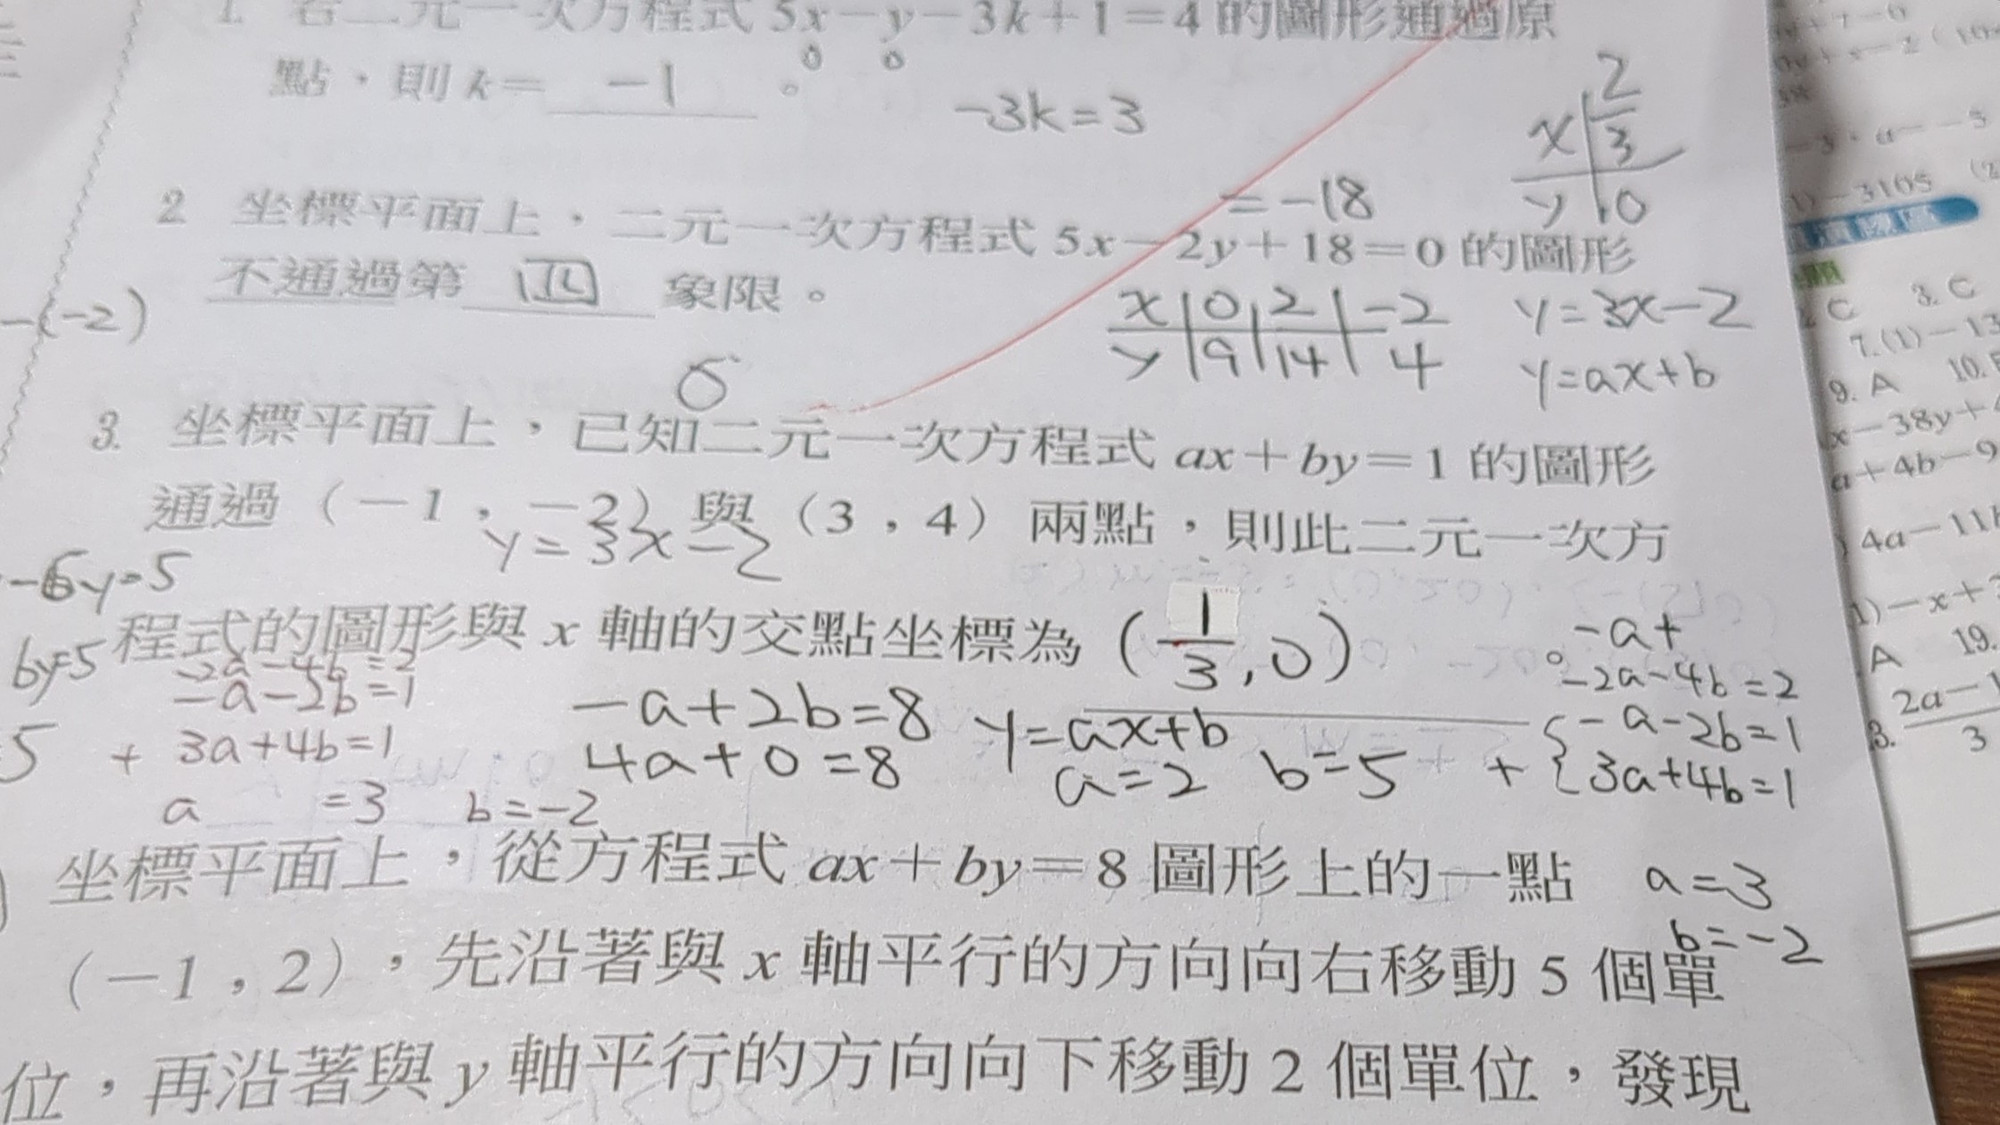 1. 若二元一次方程式 5x－y－3k＋1＝4 的圖形通過原
0 0
點，則 k＝ －1 。
-3k=3
x 2/3
y 0
＝-18
2 坐標平面上，二元一次方程式 5x－2y＋18＝0 的圖形
不通過第 四 象限。
-(-2)
x 0 2 -2
y 9 14 4
y=3x-2
y=ax+b
3. 坐標平面上，已知二元一次方程式 ax＋by＝1 的圖形
通過（－1，－2）與（3，4）兩點，則此二元一次方
y=3x-2
-6y=5
程式的圖形與 x 軸的交點坐標為 (1/3,0)。
by=5
-2a-4b=2
-a-2b=1
+ 3a+4b=1
a =3 b=-2
-a+2b=8
4a+0=8
y=ax+b
a=2 b=5
-a+
-2a-4b=2
-a-2b=1
+ 3a+4b=1
a=3
b=-2
坐標平面上，從方程式 ax＋by＝8 圖形上的一點
（－1，2），先沿著與 x 軸平行的方向向右移動 5 個單
位，再沿著與 y 軸平行的方向向下移動 2 個單位，發現
C 3. C
7.(1)－13
9. A 10.
x－38y＋
a＋4b－9
4a－11b
1)－x＋
A 19.
2a－1
3